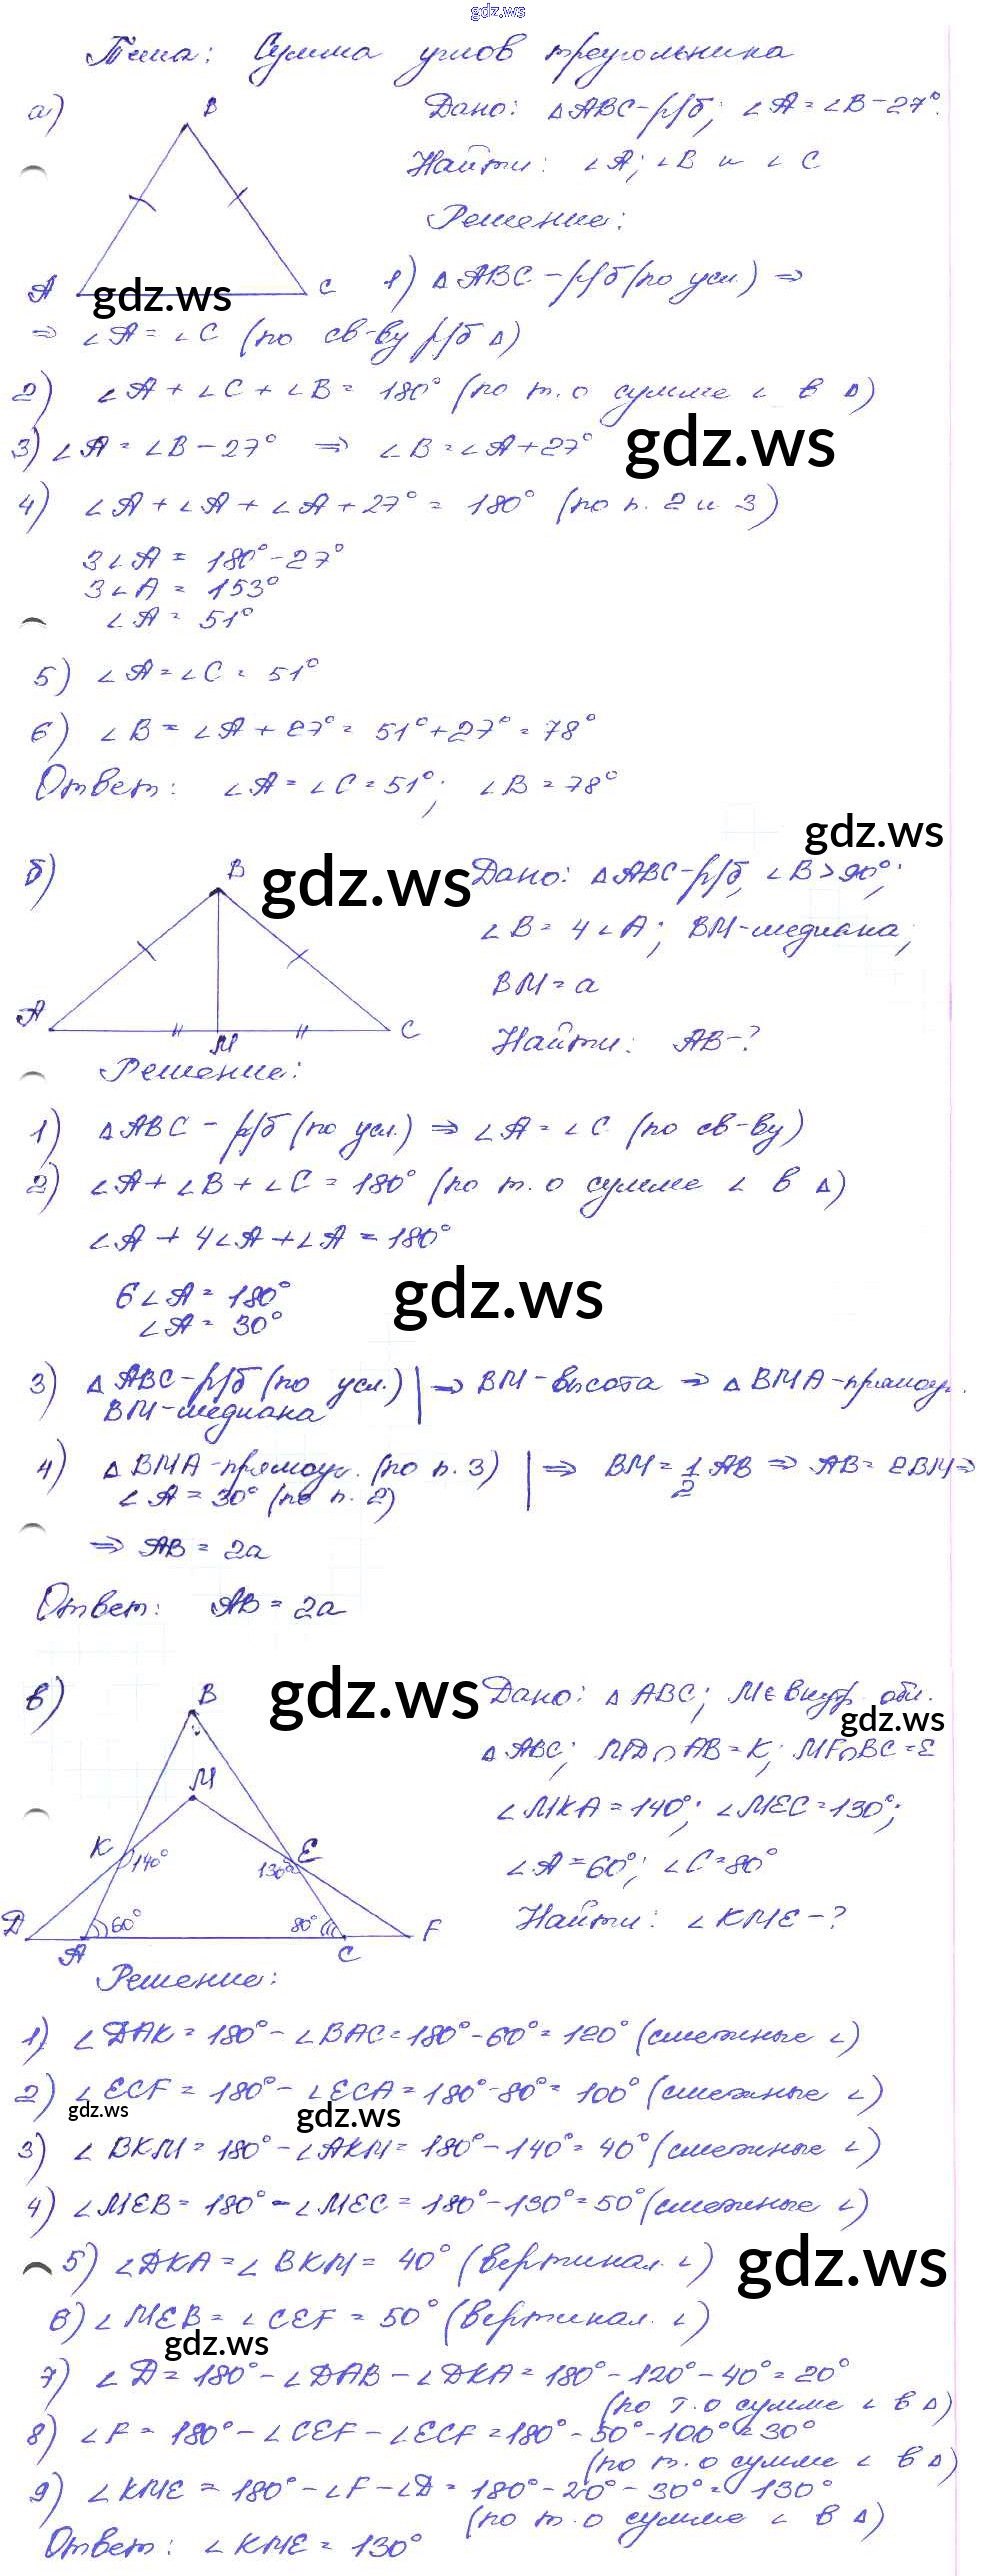 gdz.ws
Тема: Сумма углов треугольника
а)
B
A
C
Дано: △ABC-р/б; ∠A = ∠B - 27°.
Найти: ∠A; ∠B и ∠C
Решение:
1) △ABC - р/б (по усл.) ⇒
gdz.ws
⇒ ∠A = ∠C (по св-ву р/б △)
2) ∠A + ∠C + ∠B = 180° (по т. о сумме ∠ в △)
3) ∠A = ∠B - 27° ⇒ ∠B = ∠A + 27°
gdz.ws
4) ∠A + ∠A + ∠A + 27° = 180° (по п. 2 и 3)
3∠A = 180° - 27°
3∠A = 153°
∠A = 51°
5) ∠A = ∠C = 51°
6) ∠B = ∠A + 27° = 51° + 27° = 78°
Ответ: ∠A = ∠C = 51°; ∠B = 78°
gdz.ws
б)
B
gdz.ws
A
M
C
Дано: △ABC-р/б, ∠B > 90°;
∠B = 4∠A; BM-медиана;
BM = a
Найти: AB-?
Решение:
1) △ABC - р/б (по усл.) ⇒ ∠A = ∠C (по св-ву)
2) ∠A + ∠B + ∠C = 180° (по т. о сумме ∠ в △)
∠A + 4∠A + ∠A = 180°
6∠A = 180°
gdz.ws
∠A = 30°
3) △ABC-р/б (по усл.) | ⇒ BM-высота ⇒ △BMA-прямоуг.
BM-медиана
4) △BMA-прямоуг. (по п. 3) | ⇒ BM = 1/2 AB ⇒ AB = 2BM ⇒
∠A = 30° (по п. 2)
⇒ AB = 2a
Ответ: AB = 2a
в)
B
gdz.ws
M
K
140°
130°
E
D
60°
80°
F
A
C
Дано: △ABC; M∈внутр. обл.
gdz.ws
△ABC; MD∩AB=K; MF∩BC=E
∠MKA = 140°; ∠MEC = 130°;
∠A = 60°; ∠C = 80°
Найти: ∠KME-?
Решение:
1) ∠DAK = 180° - ∠BAC = 180° - 60° = 120° (смежные ∠)
2) ∠ECF = 180° - ∠ECA = 180° - 80° = 100° (смежные ∠)
gdz.ws
gdz.ws
3) ∠BKM = 180° - ∠AKM = 180° - 140° = 40° (смежные ∠)
4) ∠MEB = 180° - ∠MEC = 180° - 130° = 50° (смежные ∠)
5) ∠DKA = ∠BKM = 40° (вертикал. ∠)
gdz.ws
6) ∠MEB = ∠CEF = 50° (вертикал. ∠)
gdz.ws
7) ∠D = 180° - ∠DAB - ∠DKA = 180° - 120° - 40° = 20°
(по т. о сумме ∠ в △)
8) ∠F = 180° - ∠CEF - ∠ECF = 180° - 50° - 100° = 30°
(по т. о сумме ∠ в △)
9) ∠KME = 180° - ∠F - ∠D = 180° - 20° - 30° = 130°
(по т. о сумме ∠ в △)
Ответ: ∠KME = 130°